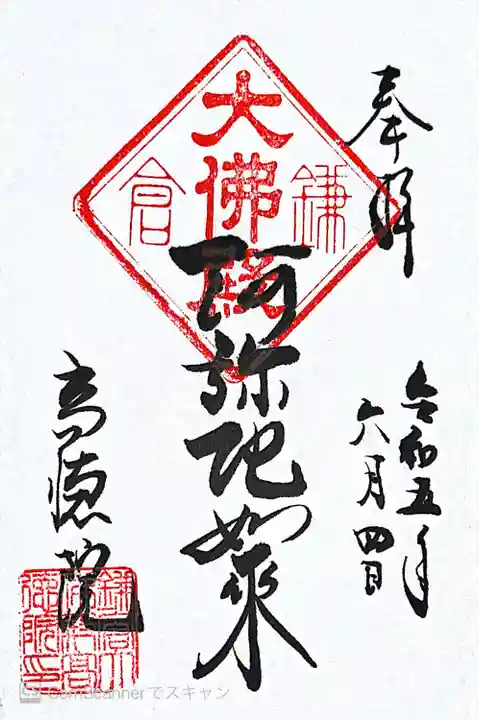 奉拝
令和五年
六月四日
鎌倉
大佛殿
阿弥陀如来
高徳院
CamScannerでスキャン